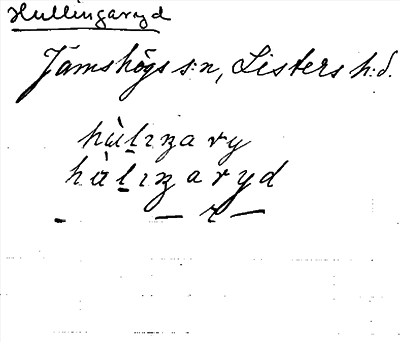 Hullingaryd
Jämshögs s:n, Listers h:d.
hùl̲ıŋa ry
hàl̲ıŋa ryd
— — r —